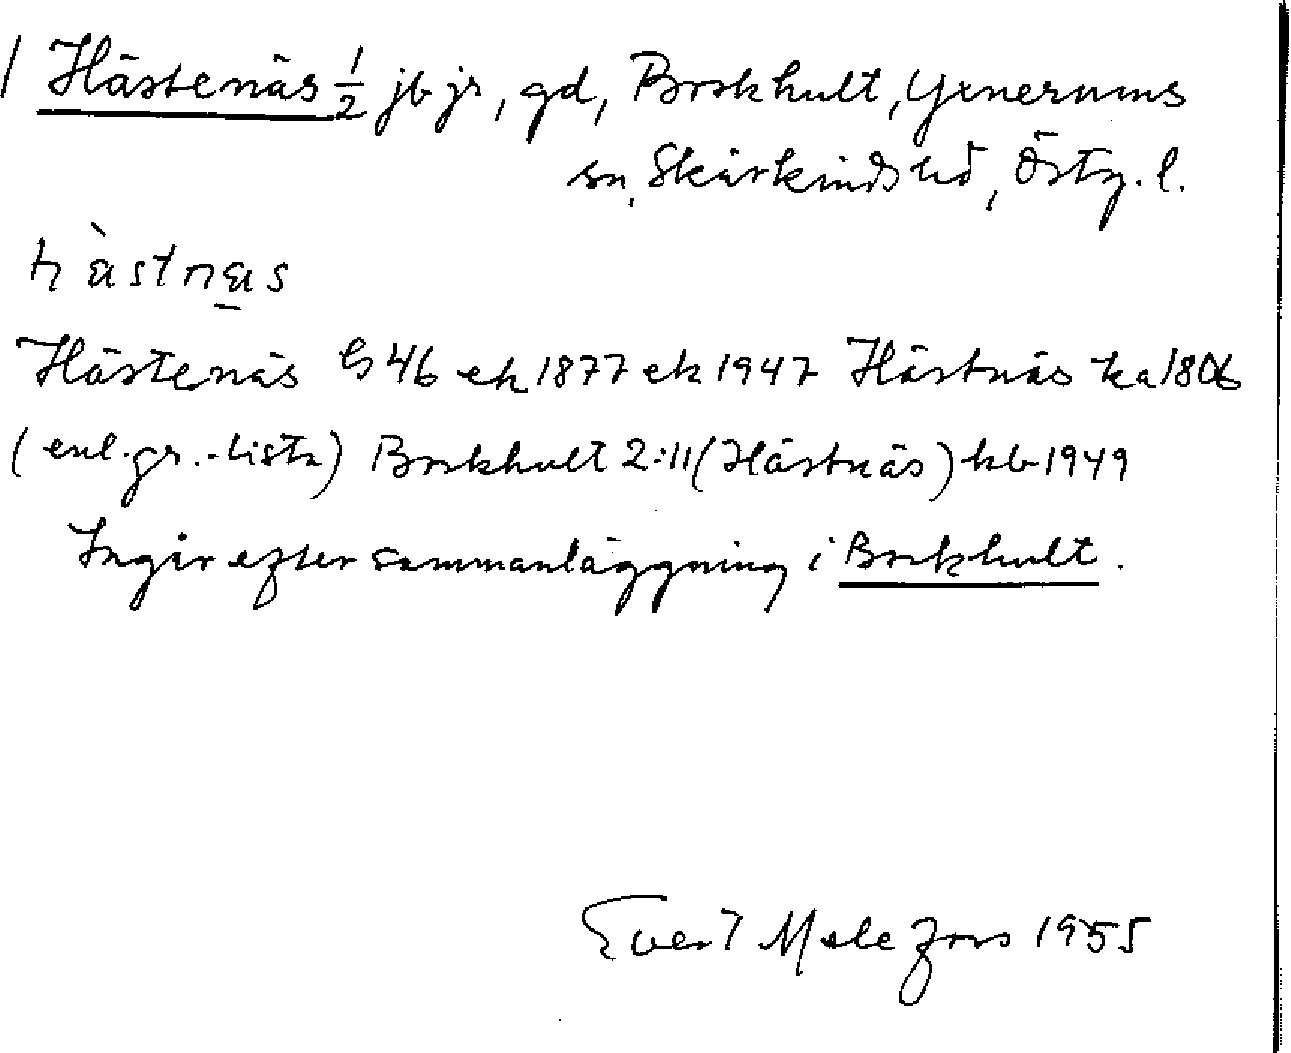 1 Hästenäs ½ jb jr, gd, Borkhult, Yxnerums
sn, Skärkinds hd, Östg. l.
hàstnas
Hästenäs G 46 ek 1877 ek 1947 Hästnäs ka 1806
(enl. gr.-lista) Borkhult 2:11 (Hästnäs) kb 1949
Ingår efter sammanläggning i Borkhult.
Evert Melefors 1955